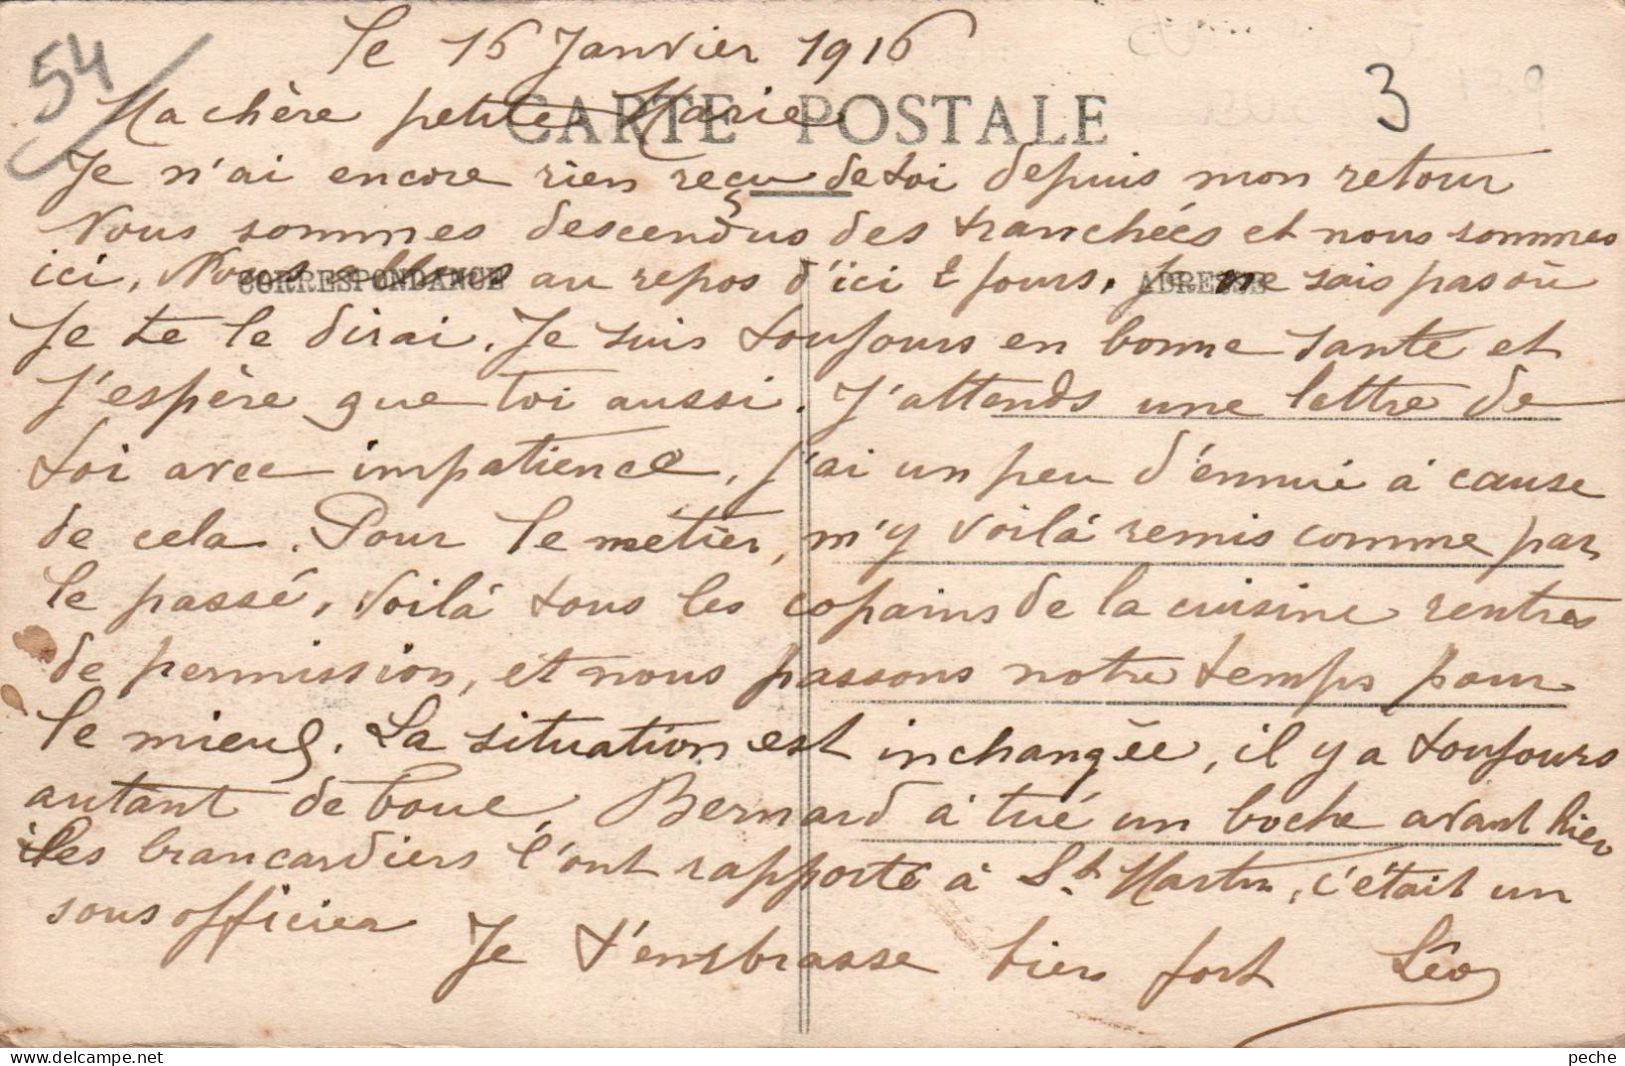 54
le 16 Janvier 1916
3
Ma chère petite Marie
CARTE POSTALE
Je n'ai encore rien reçu de toi depuis mon retour
Nous sommes descendus des tranchées et nous sommes
ici, Nous allons au repos d'ici 2 jours. Je ne sais pas où
CORRESPONDANCE
ADRESSE
Je te le dirai. Je suis toujours en bonne santé et
J'espère que toi aussi. J'attends une lettre de
toi avec impatience, j'ai un peu d'ennui à cause
de cela. Pour le métier, m'y voilà remis comme par
le passé, Voilà tous les copains de la cuisine rentres
de permission, et nous passons notre temps pour
le mieux. La situation est inchangée, il y a toujours
autant de boue, Bernard à tué un boche avant hier
les brancardiers l'ont rapporté à St Martin, c'était un
sous officier
Je t'embrasse bien fort Léo
peche
www.delcampe.net